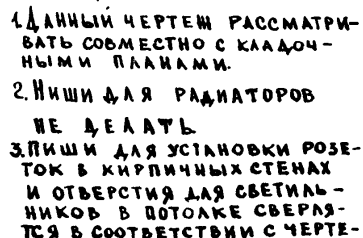 1. Данный чертеж рассматри-
вать совместно с кладоч-
ными планами.
2. Ниши для радиаторов
не делать
3. Ниши для установки розе-
ток в кирпичных стенах
и отверстия для светиль-
ников в потолке сверля-
тся в соответствии с черте-